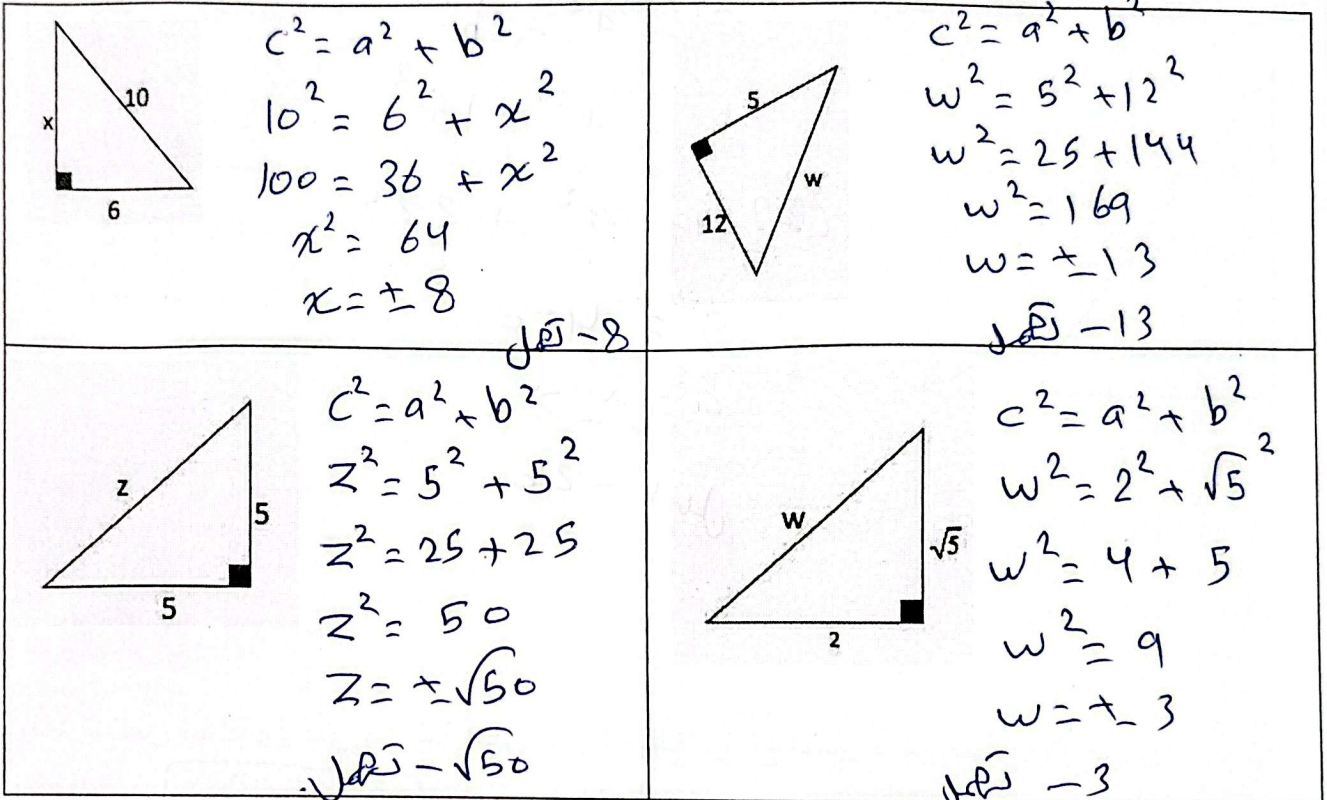 x
10
6
c² = a² + b²
10² = 6² + x²
100 = 36 + x²
x² = 64
x = ± 8
نهمل -8
5
12
w
c² = a² + b²
w² = 5² + 12²
w² = 25 + 144
w² = 169
w = ± 13
نهمل -13
z
5
5
c² = a² + b²
z² = 5² + 5²
z² = 25 + 25
z² = 50
z = ± √50
نهمل - √50
w
√5
2
c² = a² + b²
w² = 2² + √5²
w² = 4 + 5
w² = 9
w = ± 3
نهمل -3